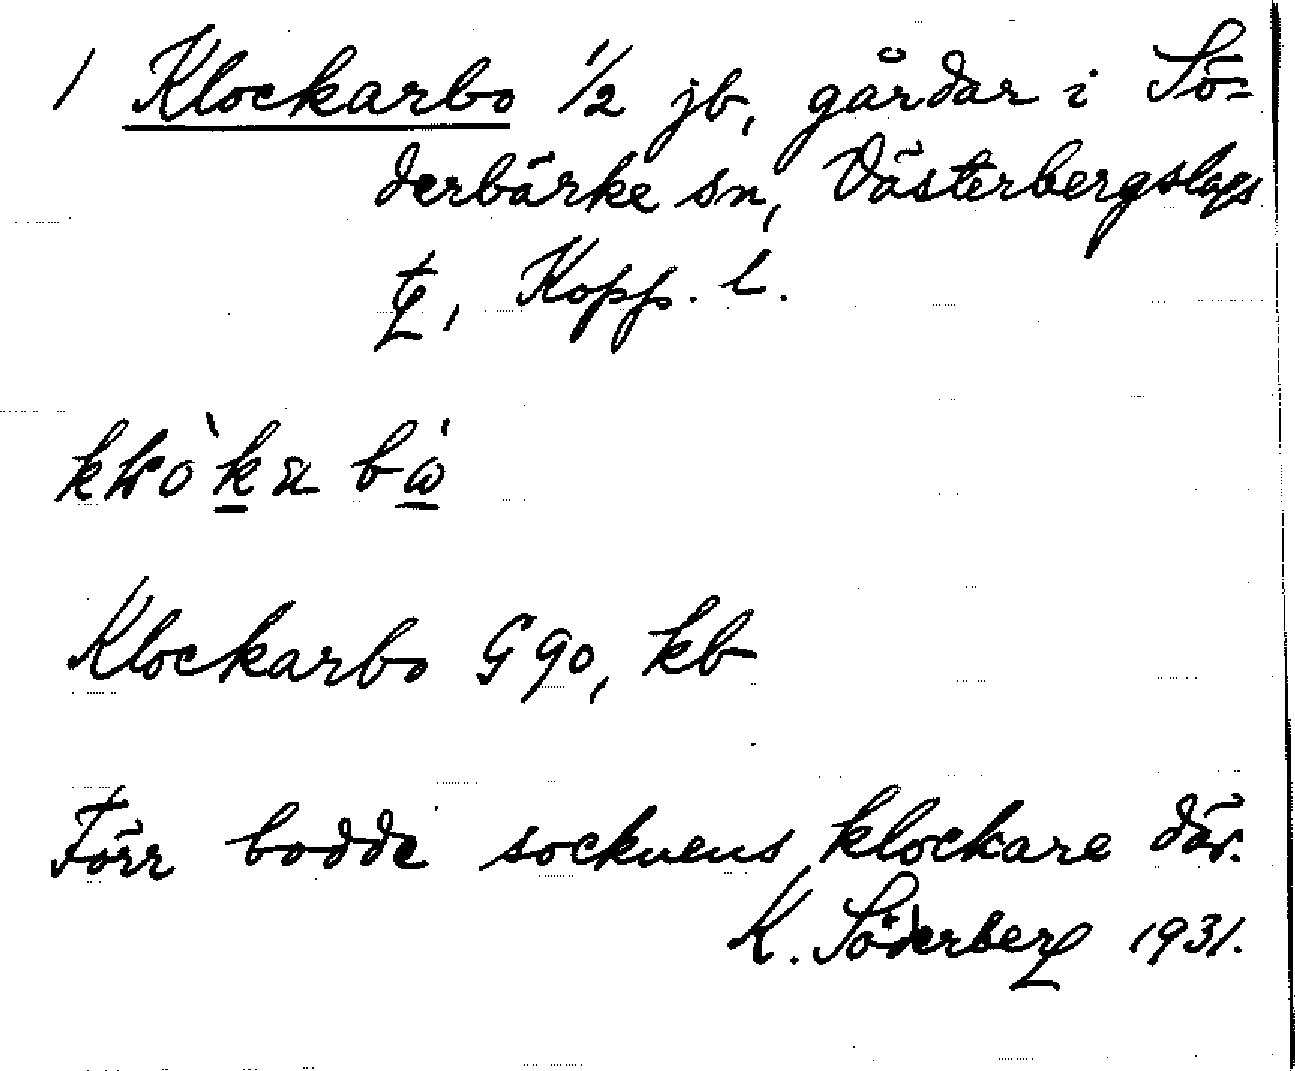 1 Klockarbo 1/2 jb, gårdar i Sö-
derbärke sn, Västerbergslags
tg, Kopp. l.
Klockarbo G 90, kb
Förr bodde socknens klockare där.
K. Söderberg 1931.